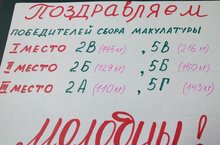 Поздравляем
ПОБЕДИТЕЛЕЙ СБОРА МАКУЛАТУРЫ
I МЕСТО 2В (145кг), 5В (216 кг)
II МЕСТО 2Б (129кг), 5Б (190кг)
III МЕСТО 2А (110кг), 5Г (143кг)
Молодцы!